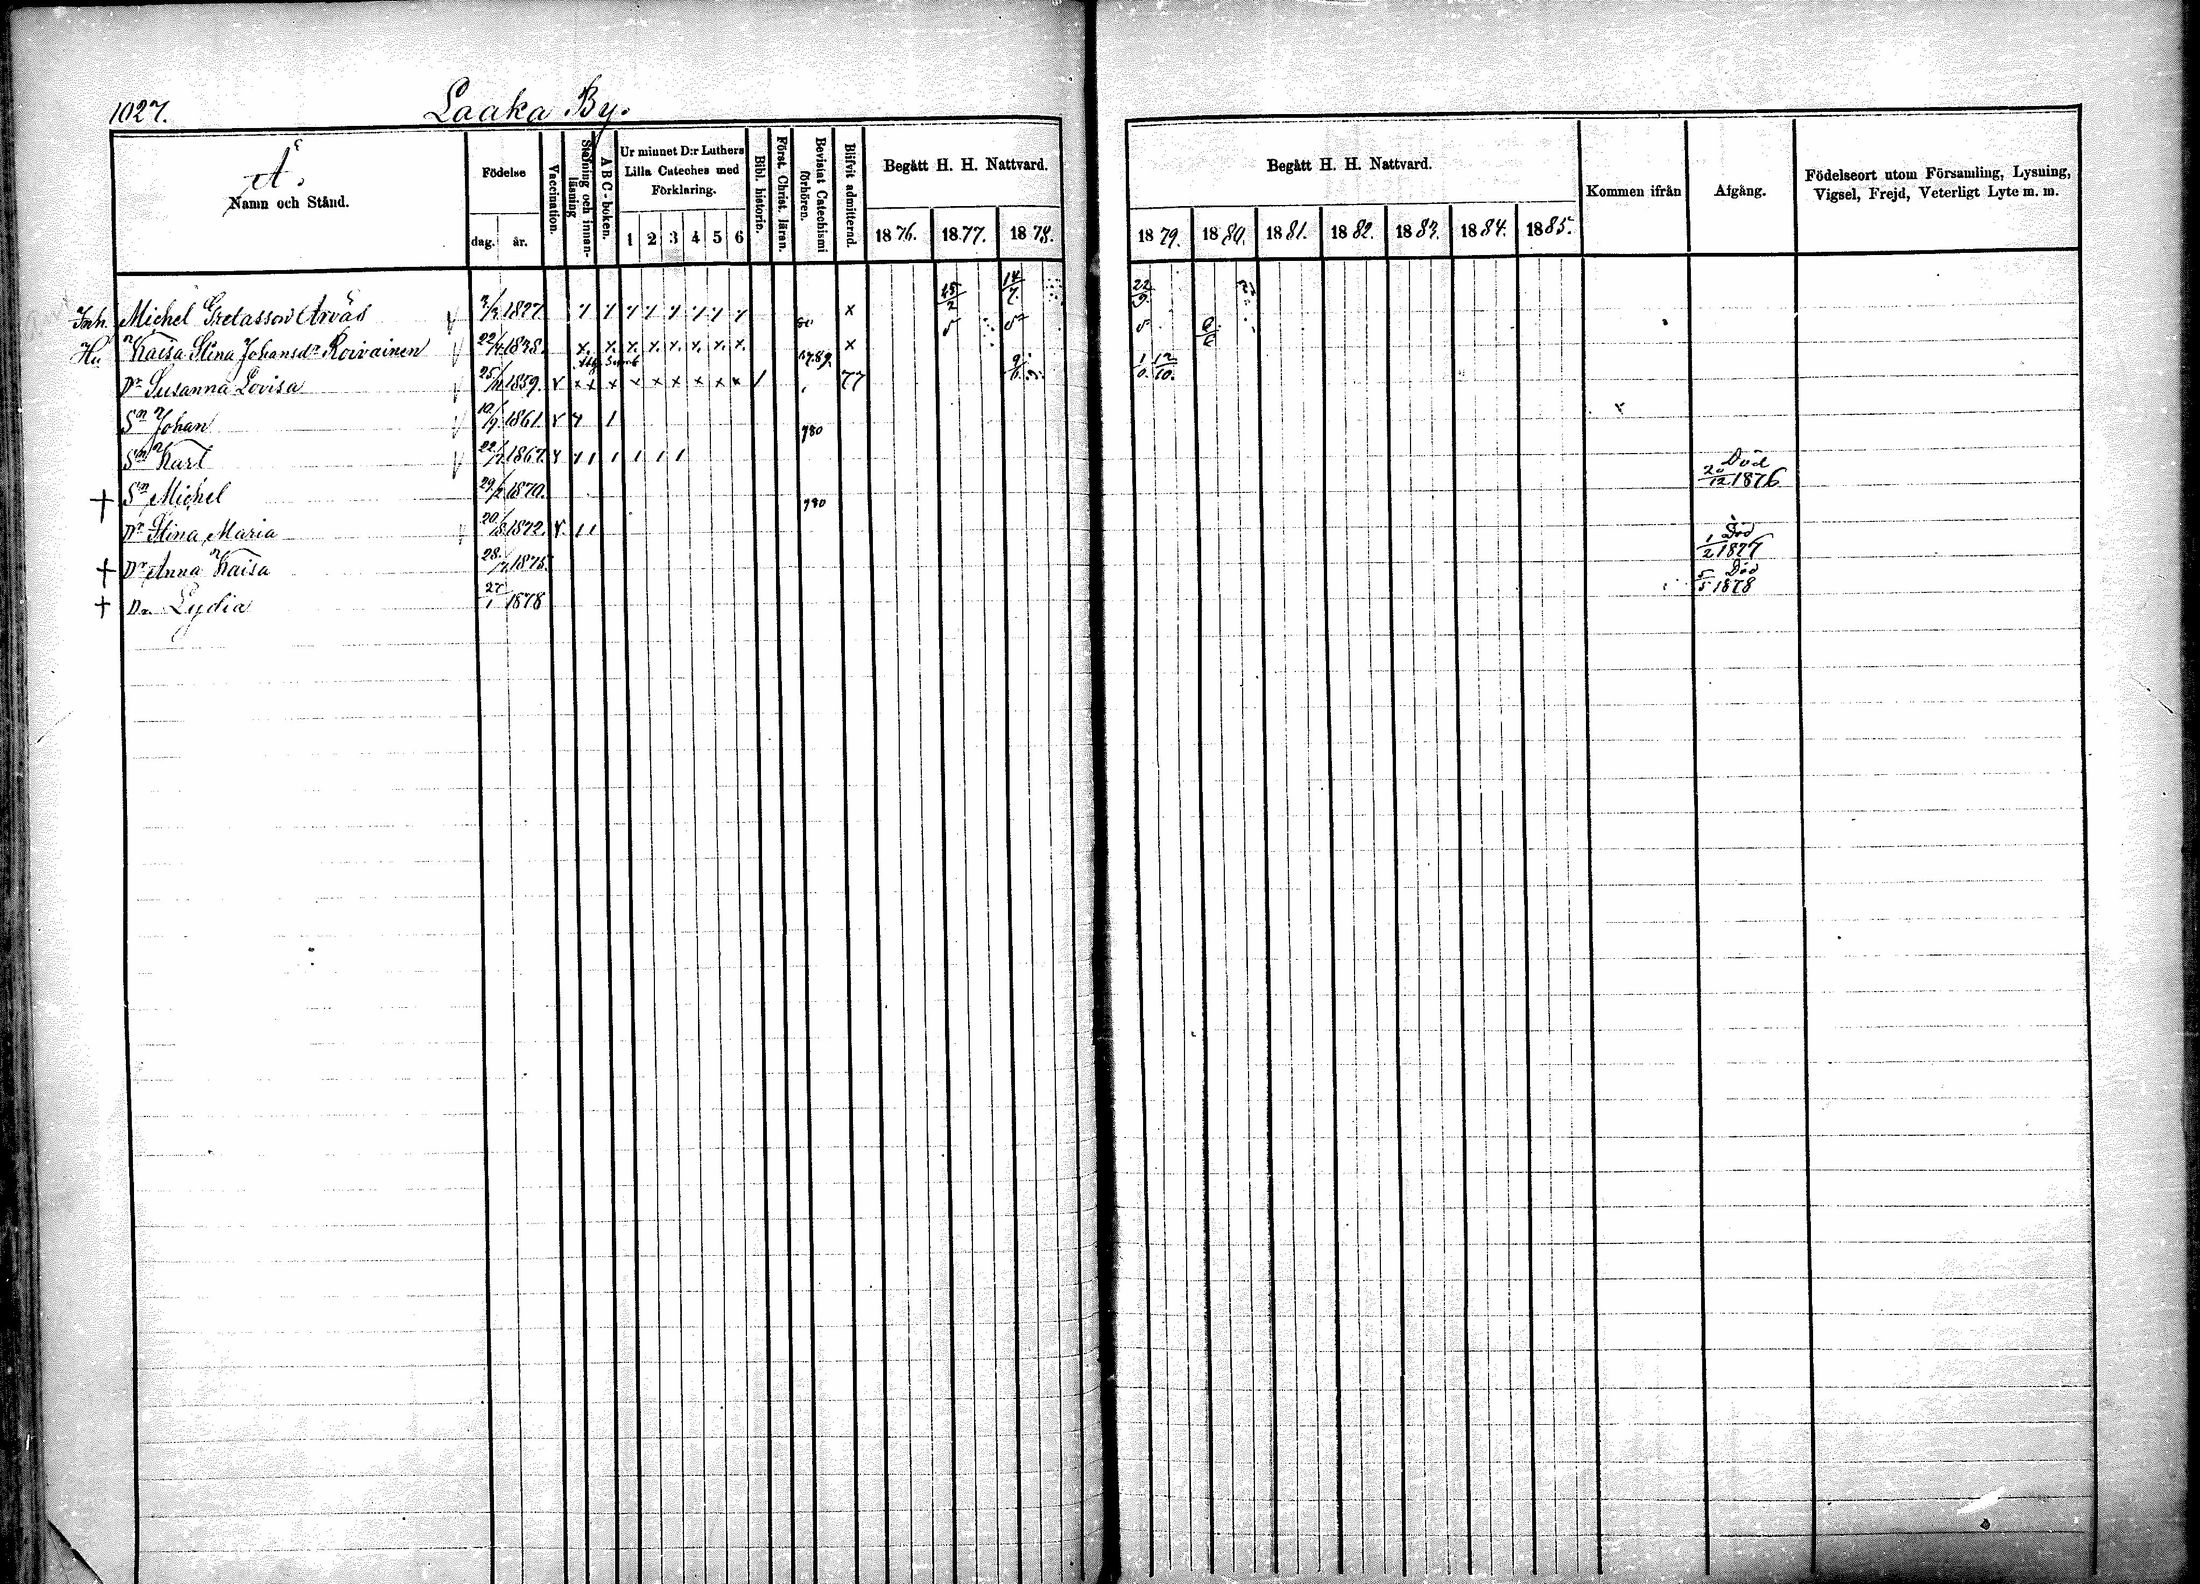 1027. Laaka By.
A.
Namn och Stånd.
Födelse
dag. år.
Vaccination.
Stafning och innan-läsning
ABC-boken.
Ur minnet D:r Luthers Lilla Cateches med Förklaring.
1 2 3 4 5 6
Bibl. historia.
Först. Christ. läran.
Bevisat Catechismi förhören.
Blifvit admitterad.
Begått H. H. Nattvard.
1876. 1877. 1878.
Begått H. H. Nattvard.
1879. 1880. 1881. 1882. 1883. 1884. 1885.
Kommen ifrån
Afgång.
Födelseort utom Församling, Lysning, Vigsel, Frejd, Veterligt Lyte m. m.
Inh. Michel Gretasson Arväs 1827 x 15/2 14/7 22/9
Hu Kaisa Stina Johansdr Roivainen 22/ 1838. x x x x x x x x x 6/6
Dr Susanna Lovisa 25/ 1859. x x x x x x x x x 77 1 12/10
Sn Johan 10/9 1861
Sn Karl 22/ 1867.
† Sn Michel 29/ 1870. Död 20/12 1876
Dr Stina Maria 20/ 1872.
† Dr Anna Kaisa 28/ 1875 Död 1/2 1877
† Dr Lydia 27/1 1878 Död 5/5 1878